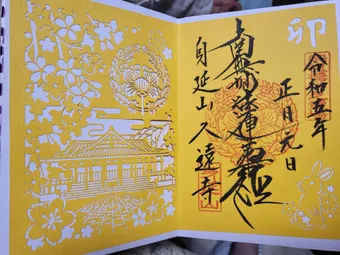 卯
令和五年
正月元日
南無妙法蓮華経
身延山 久遠寺